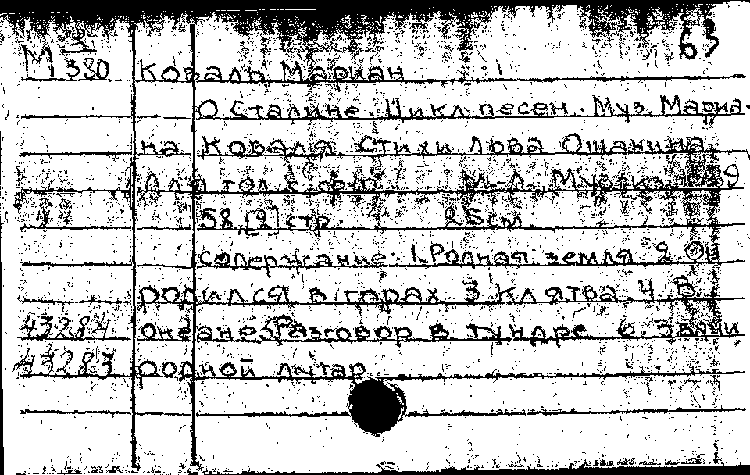 63
М 3/380 Коваль Мариан
О Сталине. Цикл песен. Муз. Мариа-
на Коваля. Стихи Льва Ошанина.
[Для гол. с ф-п. М.-Л., Музгиз
58,[2] стр. 25см.
Содержание: 1.Родная земля 2.Он
родился в горах 3.Клятва 4.В
43284 океане 5.Разговор в тундре 6.Звени
43283 родной